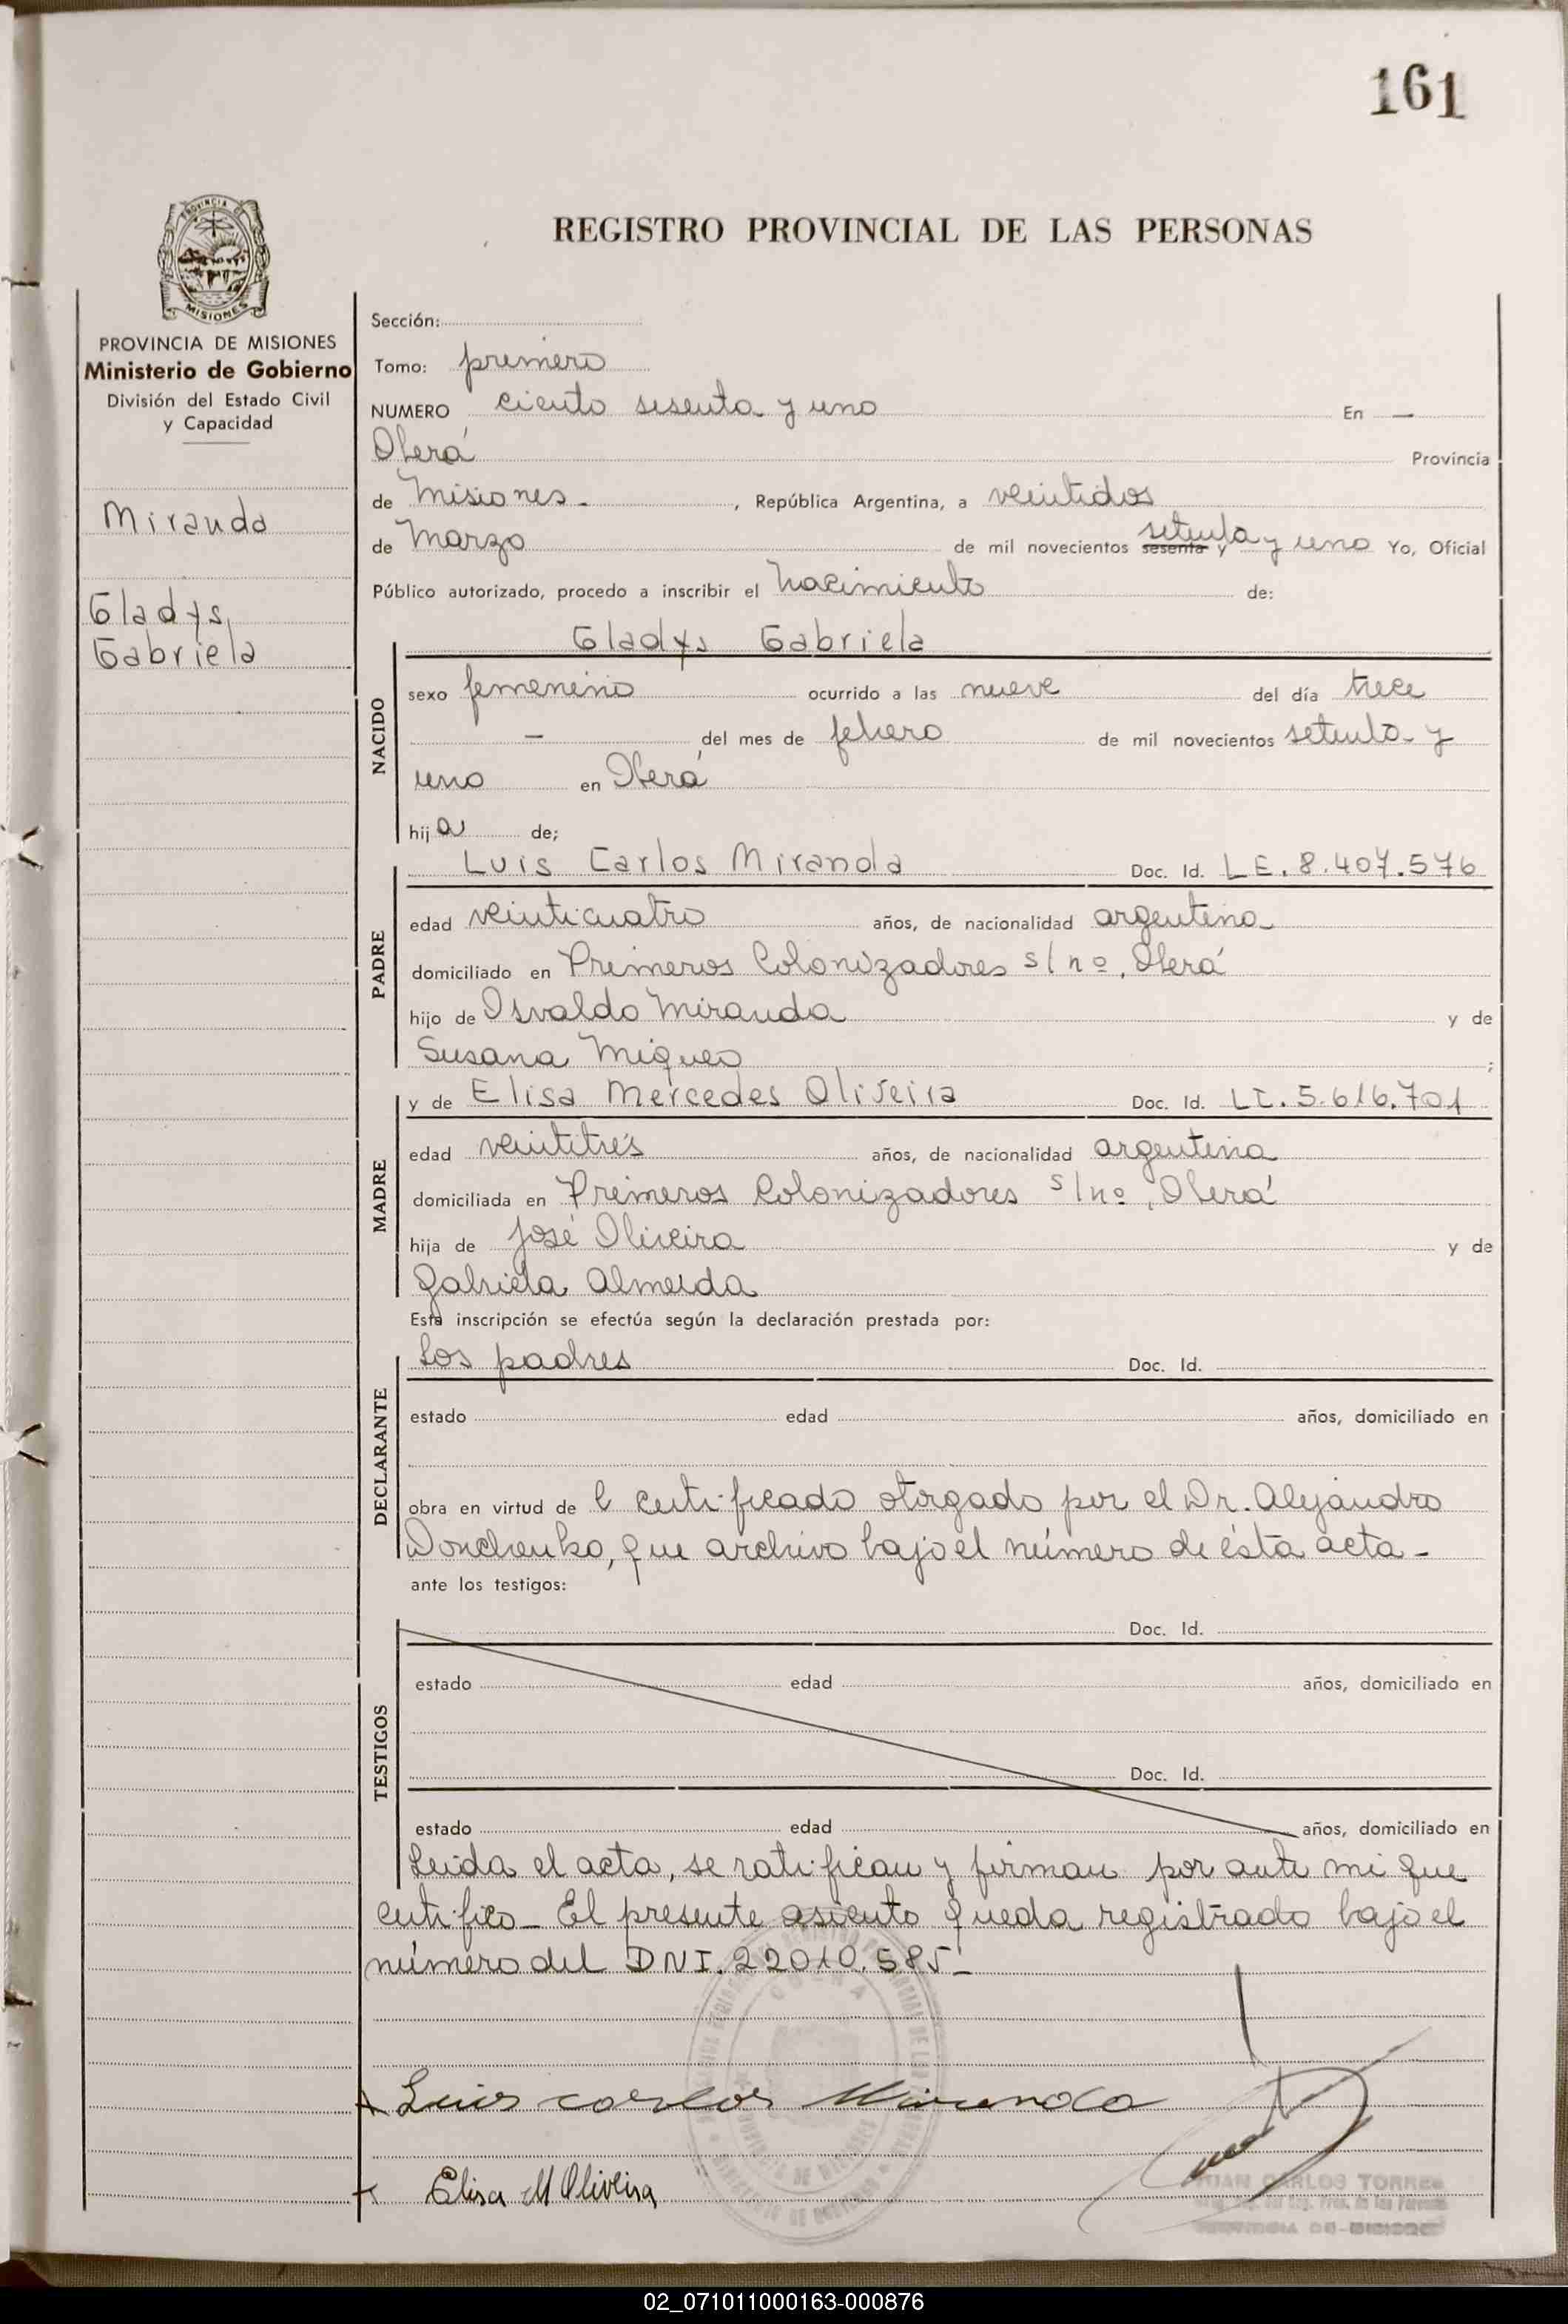 161
REGISTRO PROVINCIAL DE LAS PERSONAS
PROVINCIA DE MISIONES
Ministerio de Gobierno
División del Estado Civil
y Capacidad
Miranda
Gladys
Gabriela
Sección:
Tomo: primero
NUMERO ciento sesenta y uno En —
Oberá Provincia
de Misiones - , República Argentina, a veintidos
de Marzo de mil novecientos sesenta y setenta y uno Yo, Oficial
Público autorizado, procedo a inscribir el nacimiento de:
Gladys Gabriela
NACIDO
sexo femenino ocurrido a las nueve del día trece
— del mes de febrero de mil novecientos setenta y
uno en Oberá
hija de;
PADRE
Luis Carlos Miranda Doc. Id. L.E. 8.407.576
edad veinticuatro años, de nacionalidad argentina
domiciliado en Primeros Colonizadores s/nº, Oberá
hijo de Osvaldo Miranda y de
Susana Miqueo ;
MADRE
y de Elisa Mercedes Oliveira Doc. Id. L.C. 5.616.701
edad veintitrés años, de nacionalidad argentina
domiciliada en Primeros Colonizadores s/nº, Oberá
hija de José Oliveira y de
Gabriela Almeida
Esta inscripción se efectúa según la declaración prestada por:
DECLARANTE
Los padres Doc. Id.
estado edad años, domiciliado en
obra en virtud de l certificado otorgado por el Dr. Alejandro
Donchenko, que archivo bajo el número de ésta acta -
ante los testigos:
TESTIGOS
Doc. Id.
estado edad años, domiciliado en
Doc. Id.
estado edad años, domiciliado en
Leida el acta, se ratifican y firman por ante mi que
certifico - El presente asiento queda registrado bajo el
número del DNI. 22010.585 -
Luis carlos Miranda
Elisa M Oliveira
JUAN CARLOS TORRES
02_071011000163-000876